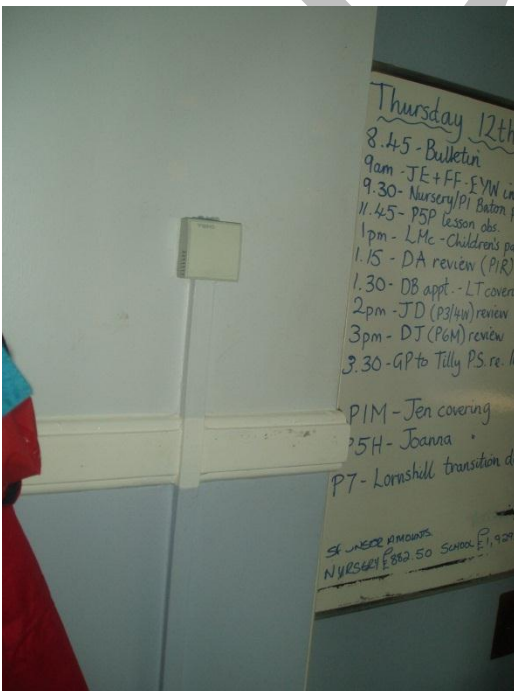 Thursday 12th
8.45 - Bulletin
9am - JE + FF - EYW in
9.30 - Nursery/P1 Baton
11.45 - P5P lesson obs.
1pm - LMc - Children's
1.15 - DA review (P1R)
1.30 - DB appt. - LT cover
2pm - JD (P3/4W) review
3pm - DJ (P6M) review
3.30 - GP to Tilly P.S. re.
P1M - Jen covering
P5H - Joanna "
P7 - Lornshill transition d
AMOUNTS
NURSERY £882.50 SCHOOL £1,929